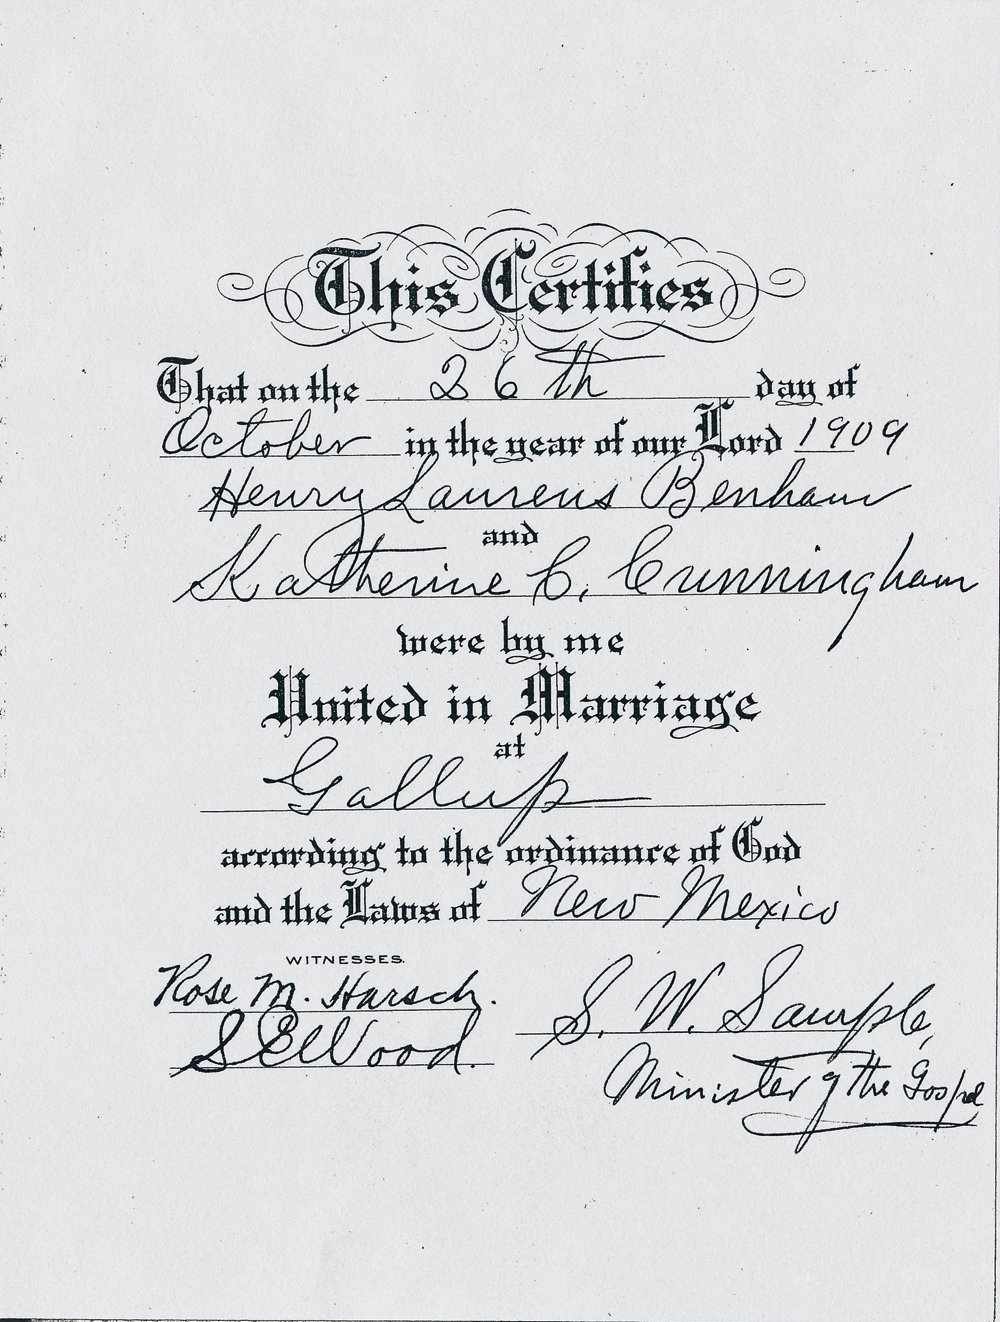 This Certifies
That on the 26th day of
October in the year of our Lord 1909
Henry Laurens Benham
and
Katherine C. Cunningham
were by me
United in Marriage
at
Gallup
according to the ordinance of God
and the Laws of New Mexico
WITNESSES.
Rose M. Harsch.
S E Wood.
S. W. Sample,
Minister of the Gospel